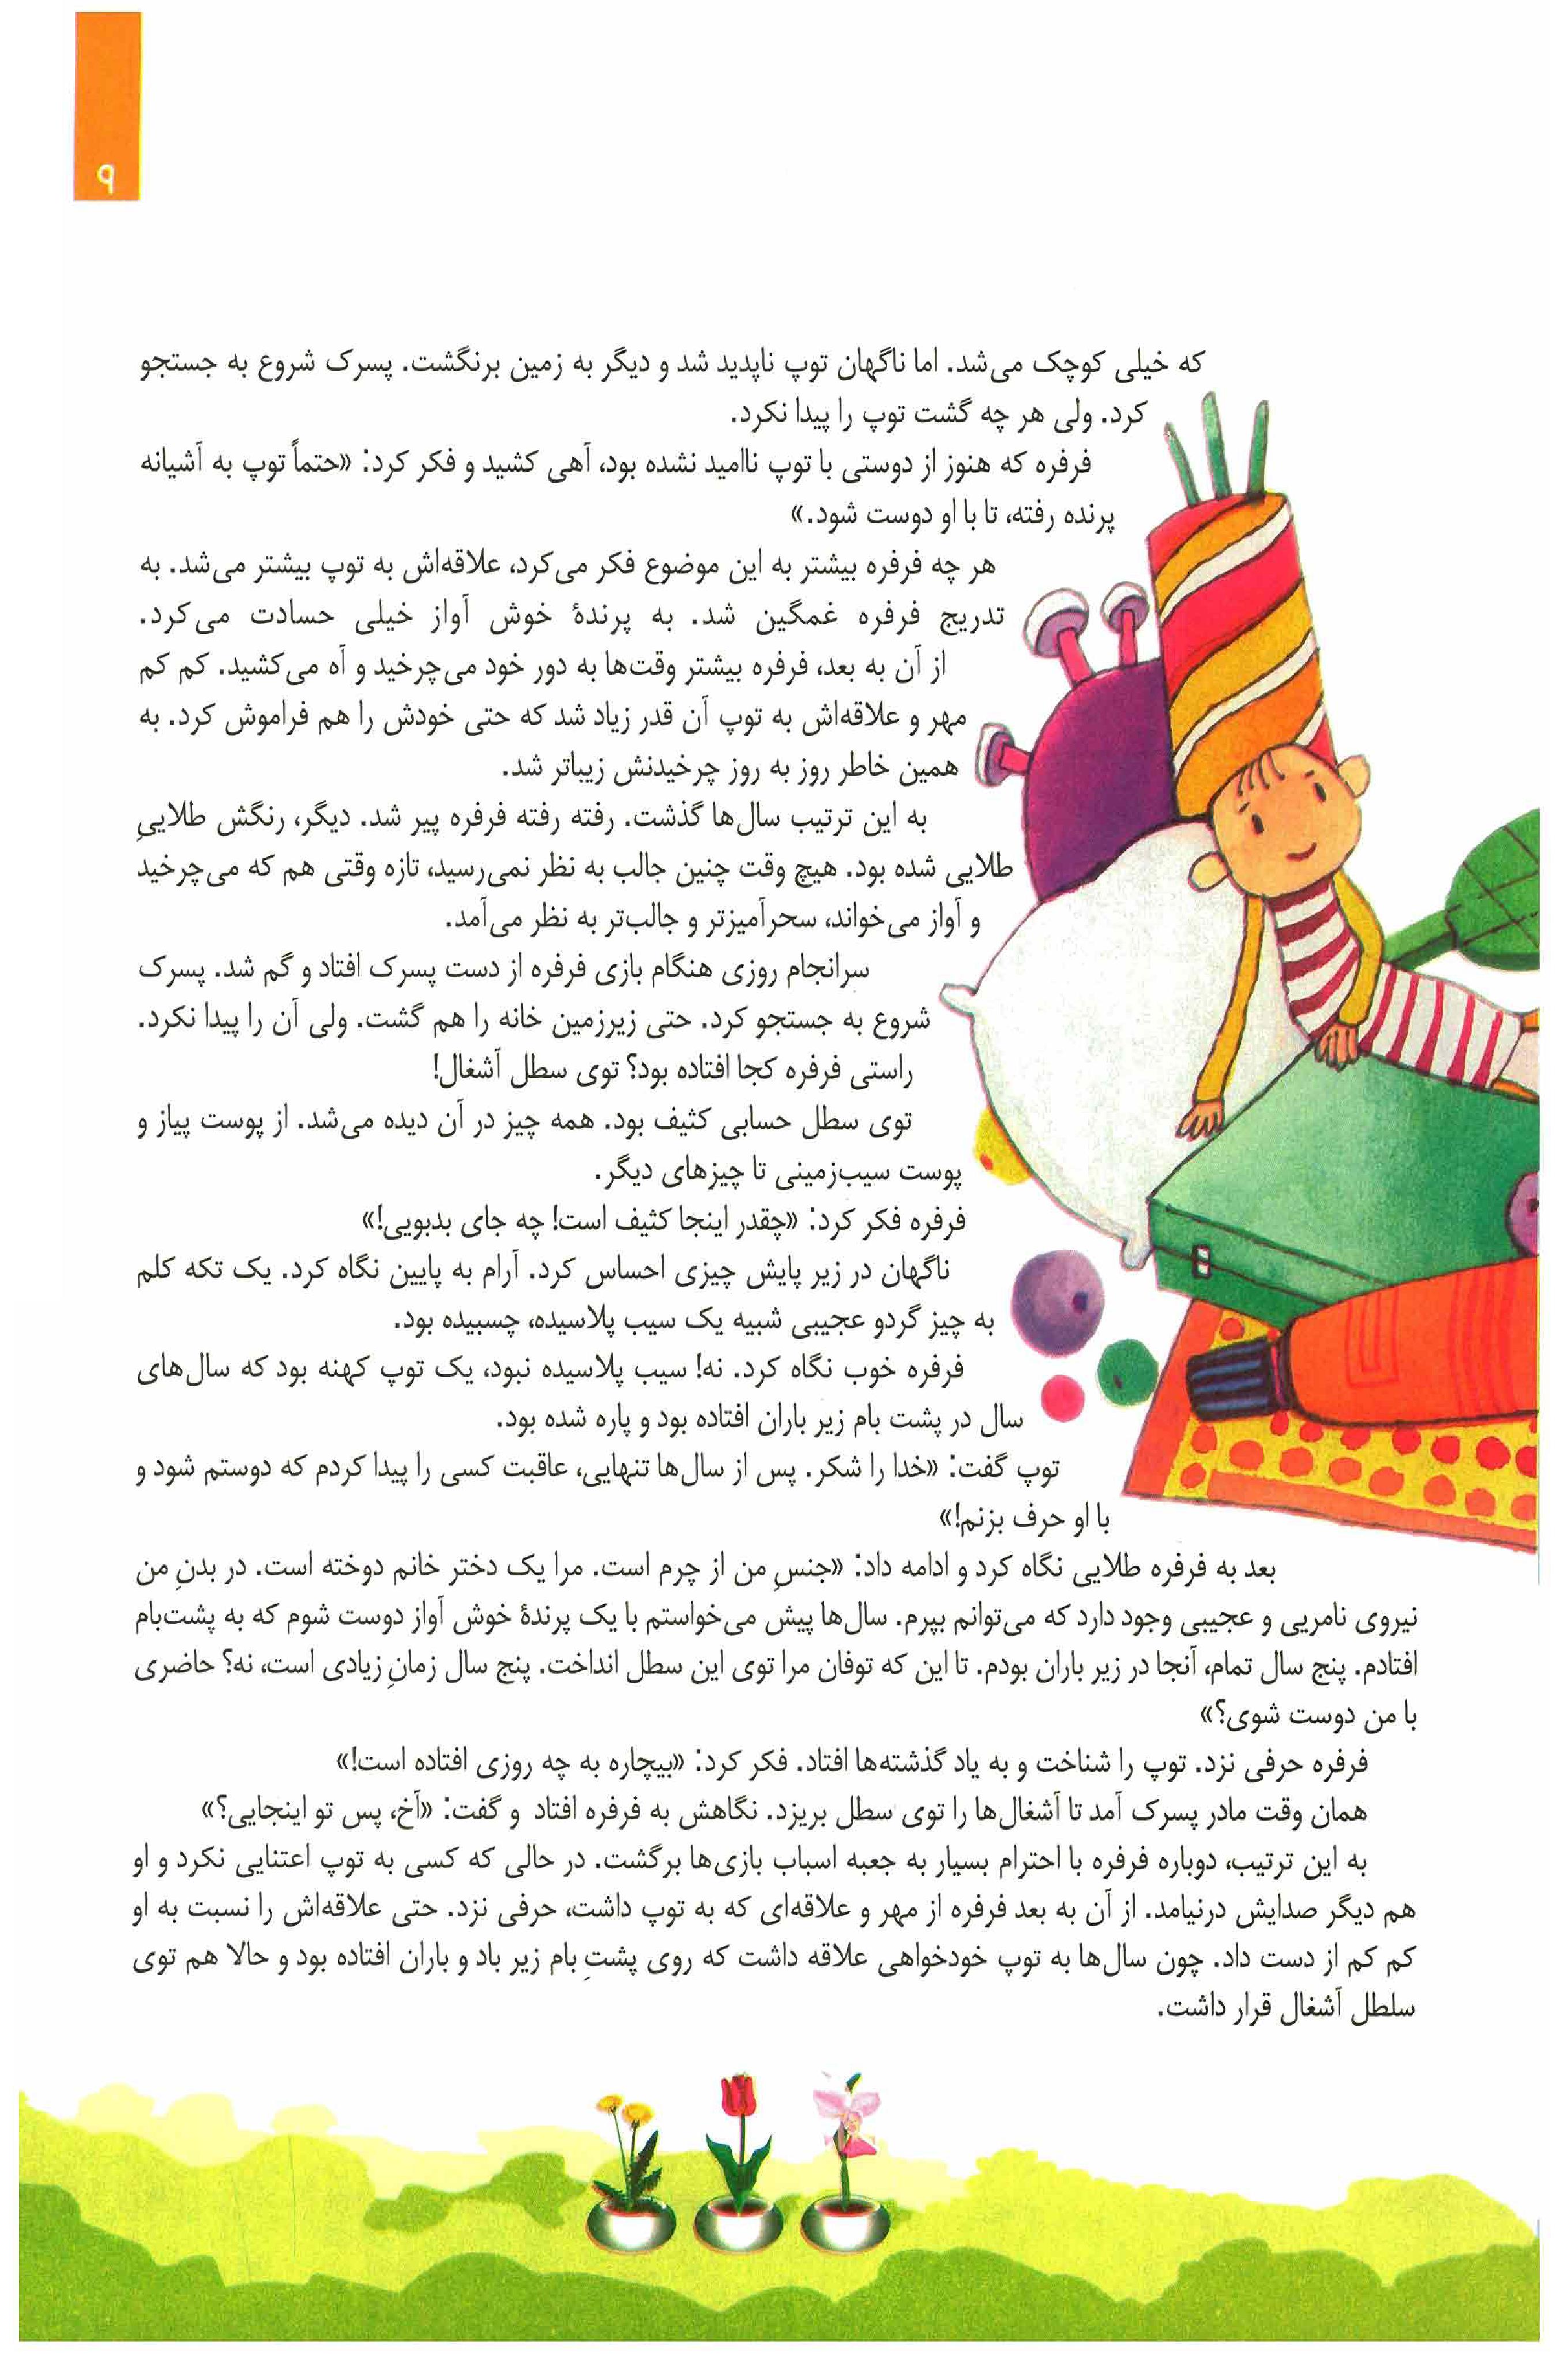 ۹
که خیلی کوچک می‌شد. اما ناگهان توپ ناپدید شد و دیگر به زمین برنگشت. پسرک شروع به جستجو
کرد. ولی هر چه گشت توپ را پیدا نکرد.
فرفره که هنوز از دوستی با توپ ناامید نشده بود، آهی کشید و فکر کرد: «حتماً توپ به آشیانه
پرنده رفته، تا با او دوست شود.»
هر چه فرفره بیشتر به این موضوع فکر می‌کرد، علاقه‌اش به توپ بیشتر می‌شد. به
تدریج فرفره غمگین شد. به پرندۀ خوش آواز خیلی حسادت می‌کرد.
از آن به بعد، فرفره بیشتر وقت‌ها به دور خود می‌چرخید و آه می‌کشید. کم کم
مهر و علاقه‌اش به توپ آن قدر زیاد شد که حتی خودش را هم فراموش کرد. به
همین خاطر روز به روز چرخیدنش زیباتر شد.
به این ترتیب سال‌ها گذشت. رفته رفته فرفره پیر شد. دیگر، رنگش طلاییِ
طلایی شده بود. هیچ وقت چنین جالب به نظر نمی‌رسید، تازه وقتی هم که می‌چرخید
و آواز می‌خواند، سحرآمیزتر و جالب‌تر به نظر می‌آمد.
سرانجام روزی هنگام بازی فرفره از دست پسرک افتاد و گم شد. پسرک
شروع به جستجو کرد. حتی زیرزمین خانه را هم گشت. ولی آن را پیدا نکرد.
راستی فرفره کجا افتاده بود؟ توی سطل آشغال!
توی سطل حسابی کثیف بود. همه چیز در آن دیده می‌شد. از پوست پیاز و
پوست سیب‌زمینی تا چیزهای دیگر.
فرفره فکر کرد: «چقدر اینجا کثیف است! چه جای بدبویی!»
ناگهان در زیر پایش چیزی احساس کرد. آرام به پایین نگاه کرد. یک تکه کلم
به چیز گردو عجیبی شبیه یک سیب پلاسیده، چسبیده بود.
فرفره خوب نگاه کرد. نه! سیب پلاسیده نبود، یک توپ کهنه بود که سال‌های
سال در پشت بام زیر باران افتاده بود و پاره شده بود.
توپ گفت: «خدا را شکر. پس از سال‌ها تنهایی، عاقبت کسی را پیدا کردم که دوستم شود و
با او حرف بزنم!»
بعد به فرفره طلایی نگاه کرد و ادامه داد: «جنسِ من از چرم است. مرا یک دختر خانم دوخته است. در بدنِ من
نیروی نامریی و عجیبی وجود دارد که می‌توانم بپرم. سال‌ها پیش می‌خواستم با یک پرندۀ خوش آواز دوست شوم که به پشت‌بام
افتادم. پنج سال تمام، آنجا در زیر باران بودم. تا این که توفان مرا توی این سطل انداخت. پنج سال زمانِ زیادی است، نه؟ حاضری
با من دوست شوی؟»
فرفره حرفی نزد. توپ را شناخت و به یاد گذشته‌ها افتاد. فکر کرد: «بیچاره به چه روزی افتاده است!»
همان وقت مادر پسرک آمد تا آشغال‌ها را توی سطل بریزد. نگاهش به فرفره افتاد و گفت: «آخ، پس تو اینجایی؟»
به این ترتیب، دوباره فرفره با احترام بسیار به جعبه اسباب بازی‌ها برگشت. در حالی که کسی به توپ اعتنایی نکرد و او
هم دیگر صدایش درنیامد. از آن به بعد فرفره از مهر و علاقه‌ای که به توپ داشت، حرفی نزد. حتی علاقه‌اش را نسبت به او
کم کم از دست داد. چون سال‌ها به توپ خودخواهی علاقه داشت که روی پشتِ بام زیر باد و باران افتاده بود و حالا هم توی
سلطل آشغال قرار داشت.